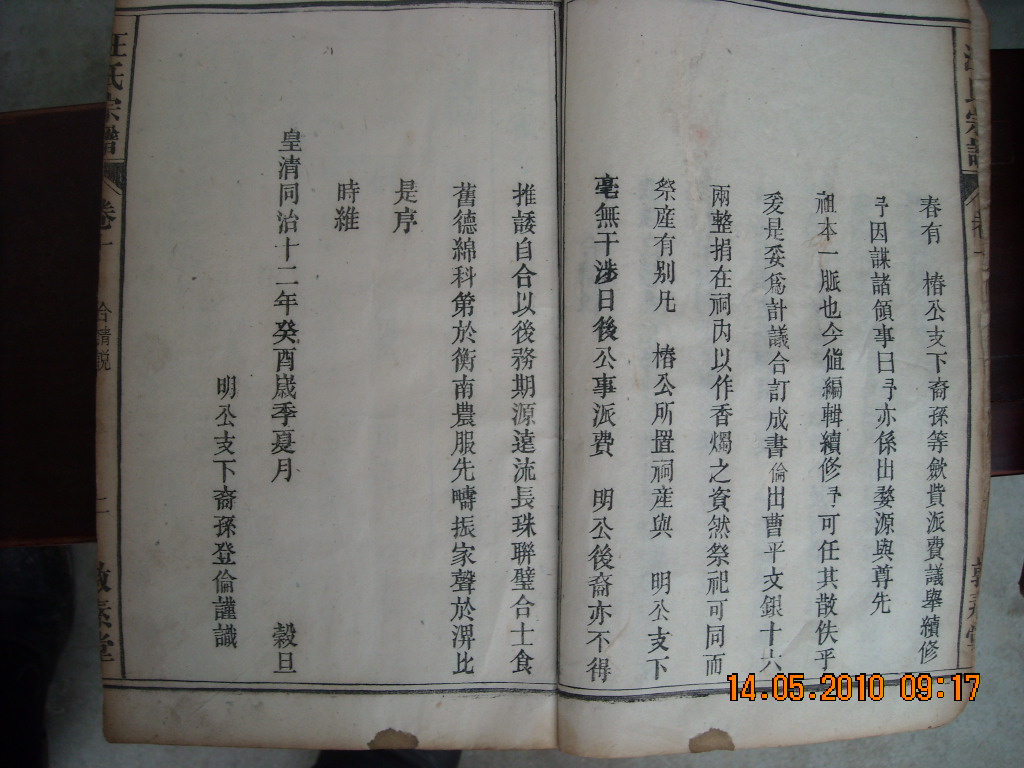 春有 椿公支下裔孫等斂貲派費議舉續修
予因謀諸領事曰予亦係出婺源與尊先
祖本一脈也今傕編輯續修予可任其散佚乎
爰是妥爲計議合訂成書倫出曹平文銀十六
兩整捐在祠內以作香燭之資然祭祀可同而
祭産有别凡 椿公所置祠産與 明公支下
毫無干涉日後公事派費 明公後裔亦不得
推諉自合以後務期源遠流長珠聯璧合士食
舊德綿科第於衡南農服先疇振家聲於淠比
是序
時維
皇清同治十二年癸酉歲季夏月 穀旦
明公支下裔孫登倫謹識
汪氏宗譜 卷一 合請說 二 敦素堂
14.05.2010 09:17